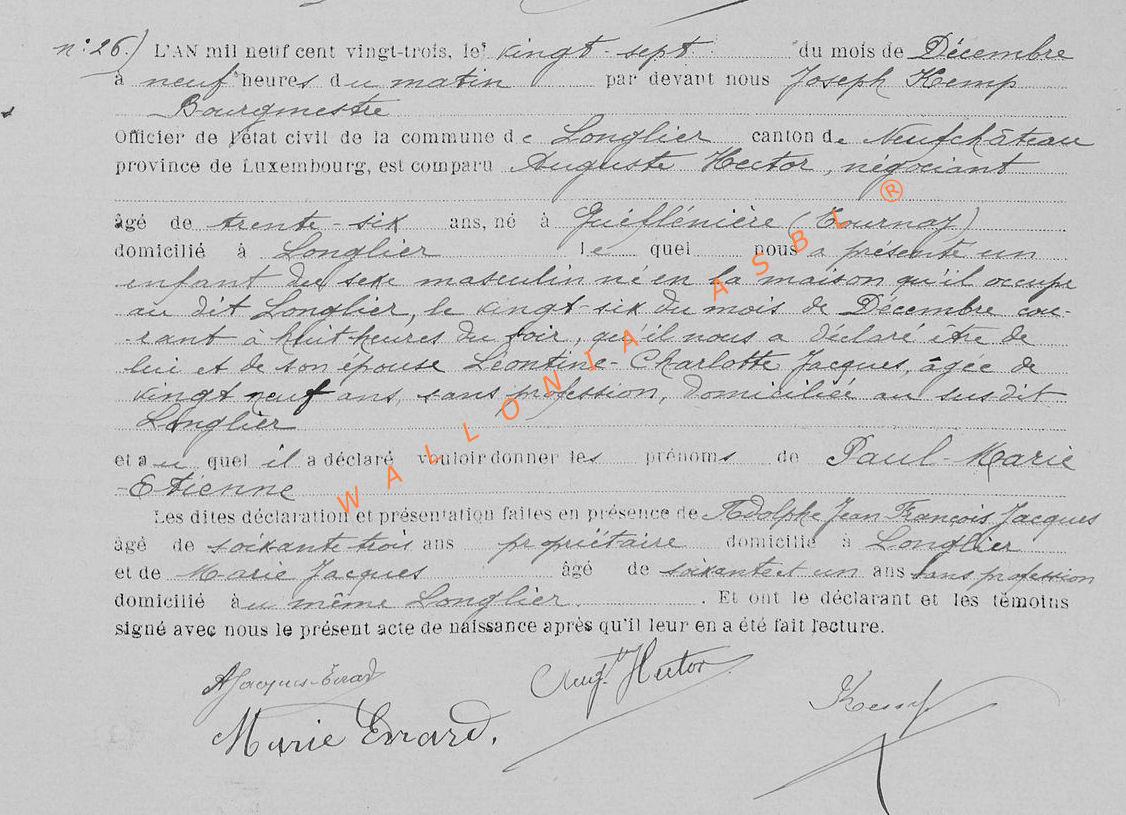 n° 26) L'AN mil neuf cent vingt-trois, le vingt-sept du mois de Décembre
à neuf heures du matin par devant nous Joseph Kemp
Bourgmestre
Officier de l'état civil de la commune de Longlier canton de Neufchâteau
province de Luxembourg, est comparu Auguste Hector, négociant
âgé de trente-six ans, né à (Tournay)
domicilié à Longlier le quel nous a présenté un
enfant du sexe masculin né en la maison qu'il occupe
au dit Longlier, le vingt-six du mois de Décembre cou-
rant à huit heures du soir, qu'il nous a déclaré être de
lui et de son épouse Léontine-Charlotte Jacques, âgée de
vingt neuf ans, sans profession, domiciliée au susdit
Longlier
et au quel il a déclaré vouloir donner les prénoms de Paul-Marie
-Etienne
Les dites déclaration et présentation faites en présence de Adolphe Jean François Jacques
âgé de soixante-trois ans propriétaire domicilié à Longlier
et de Marie Jacques âgé de soixante et un ans sans profession
domicilié au même Longlier. Et ont le déclarant et les témoins
signé avec nous le présent acte de naissance après qu'il leur en a été fait lecture.
AJacques-Evrard Aug.te Hector Kemp
Marie Evrard.
WALLONIA ASBL ®